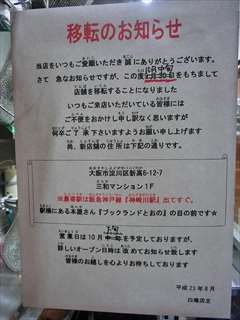 移転のお知らせ
当店をいつもご愛顧いただき誠にありがとうございます。
さて 急なお知らせですが、この度10月中旬をもちまして
店舗を移転することになりました
いつもご来店いただいている皆様には
ご不便をおかけし申し訳なく思いますが
何卒ご了承下さいますようお願い申し上げます
尚、新店舗の住所は下記の通りです。
大阪市淀川区新高6-12-7
三和マンション1F
※最寄駅は阪急神戸線『神崎川駅』出てすぐ。
駅横にある本屋さん『ブックランドとおの』の目の前です☆
下旬
営業日は10月中旬を予定しておりますが、
詳しいオープン日時は改めてお知らせ致します
皆様のお越しを心よりお待ちしております
平成23年8月
店主